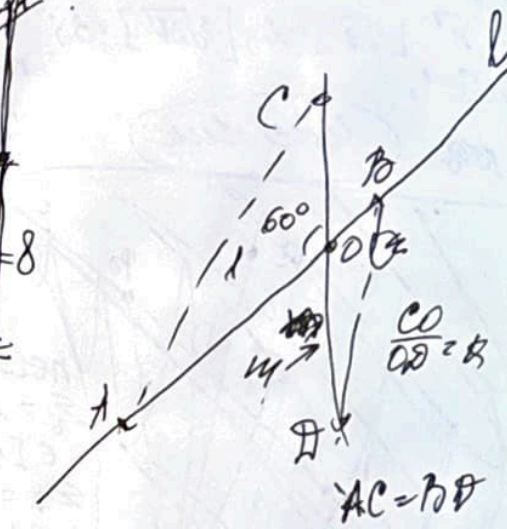 l
C
B
60°
O
=8
CO
OD
A
D
AC=BD